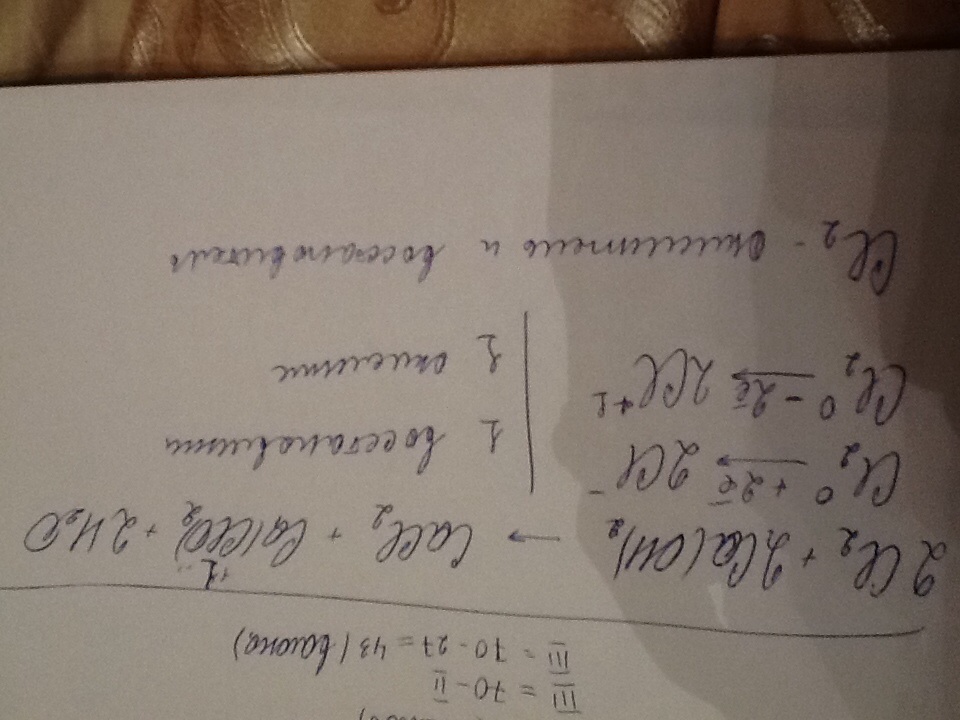 III = 70 - II
III = 70 - 27 = 43 (вагона)
2Cl₂ + 2Ca(OH)₂ → CaCl₂ + Ca(ClO)₂ + 2H₂O
+1
Cl₂⁰ + 2ē → 2Cl⁻ | 1 восстановити
Cl₂⁰ - 2ē → 2Cl⁺¹ | 1 окислите
Cl₂ - окислитель и восстановитель